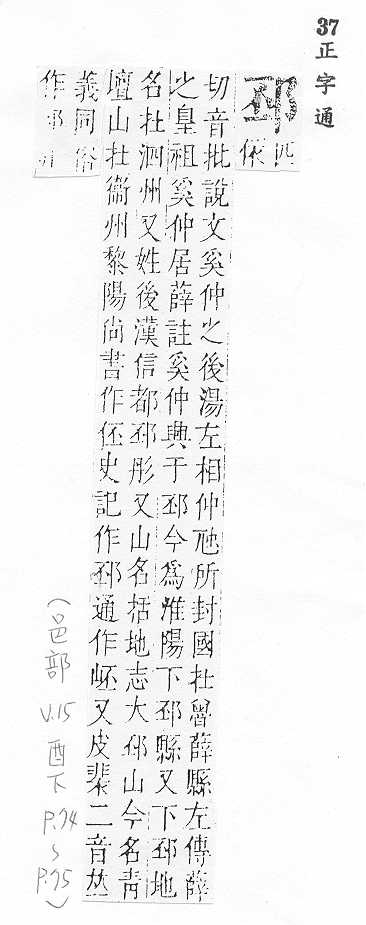 37正字通
邳
匹
依
切音批說文奚仲之後湯左相仲虺所封國在魯薛縣左傳薛
之皇祖奚仲居薛註奚仲興于邳今為淮陽下邳縣又下邳地
名在泗州又姓後漢信都邳彤又山名括地志大邳山今名青
壇山在衞州黎陽尚書作伾史記作邳通作岯又皮棐二音𠀤
義同俗
作
(邑部 V.15 酉下 P.74~P.75)